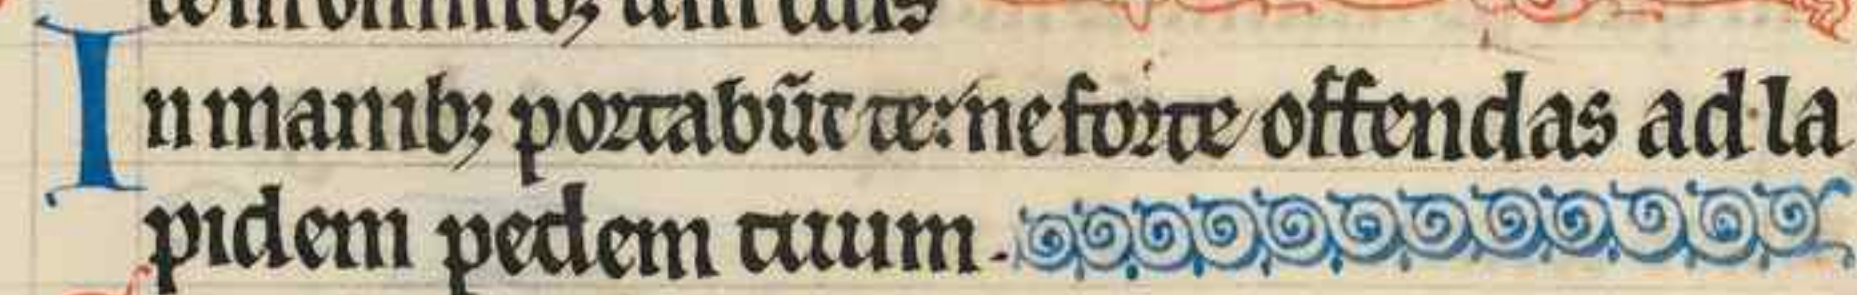 tuis
In manib; portabūt te: ne forte offendas ad la
pidem pedem tuum.